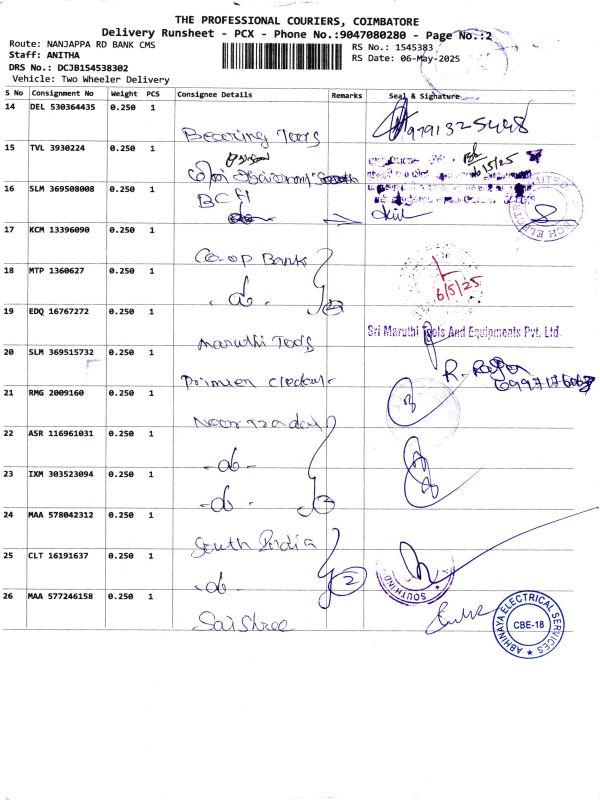 THE PROFESSIONAL COURIERS, COIMBATORE
Delivery Runsheet - PCX - Phone No.:9047080280 - Page No.:2
Route: NANJAPPA RD BANK CMS
RS No.: 1545383
Staff: ANITHA
RS Date: 06-May-2025
DRS No.: DCJB154538302
Vehicle: Two Wheeler Delivery
S No Consignment No Weight PCS Consignee Details Remarks Seal & Signature
14 DEL 530364435 0.250 1
Bearing Tools
15 TVL 3930224 0.250 1
6/5/25
16 SLM 369508008 0.250 1
BCH
17 KCM 13396090 0.250 1
Co-op Bank
18 MTP 1360627 0.250 1
- do -
6/5/25
19 EDQ 16767272 0.250 1
Maruthi Tools
Sri Maruthi Tools And Equipments Pvt. Ltd.
20 SLM 369515732 0.250 1
21 RMG 2009160 0.250 1
22 ASR 116961031 0.250 1
- do -
23 IXM 303523094 0.250 1
- do -
24 MAA 578042312 0.250 1
South India
25 CLT 16191637 0.250 1
- do -
2
SOUTH IND
26 MAA 577246158 0.250 1
Sai Shree
ABHINAYA ELECTRICAL SERVICES
CBE-18